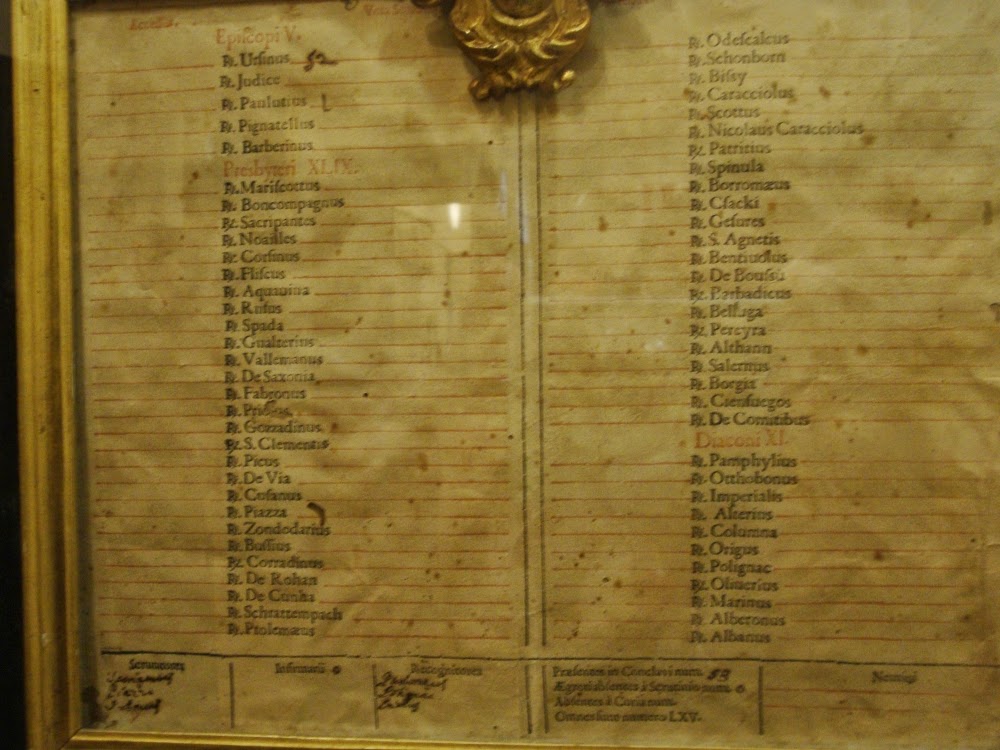 Accessus.
Episcopi V.
℞. Ursinus 52
℞. Judice
℞. Paulutius
℞. Pignatellus
℞. Barberinus
Presbyteri XLIX.
℞. Mariscottus
℞. Boncompagnus
℞. Sacripantes
℞. Noailles
℞. Corsinus
℞. Fliscus
℞. Aquauina
℞. Rufus
℞. Spada
℞. Gualterius
℞. Vallemanus
℞. De Saxonia
℞. Fabronus
℞. Priolus
℞. Gozzadinus
℞. S. Clementis
℞. Picus
℞. De Via
℞. Cusanus
℞. Piazza
℞. Zondodarius
℞. Bussius
℞. Corradinus
℞. De Rohan
℞. De Cunha
℞. Schrattempach
℞. Ptolemæus
℞. Odescalcus
℞. Schonborn
℞. Bissy
℞. Caracciolus
℞. Scottus
℞. Nicolaus Caracciolus
℞. Patritius
℞. Spinula
℞. Borromæus
℞. Csacki
℞. Gesures
℞. S. Agnetis
℞. Bentiuolus
℞. De Boussu
℞. Barbadicus
℞. Belluga
℞. Pereyra
℞. Althann
℞. Salernus
℞. Borgia
℞. Cienfuegos
℞. De Comitibus
Diaconi XI.
℞. Pamphylius
℞. Otthobonus
℞. Imperialis
℞. Alterius
℞. Columna
℞. Origus
℞. Polignac
℞. Oliuerius
℞. Marinus
℞. Alberonus
℞. Albanus
Scrutatores
Infirmarii 0
Recognitores
Præsentes in Conclavi num. 53
Ægroti absentes à Scrutinio num. 0
Absentes à Curia num.
Omnes sunt numero LXV.